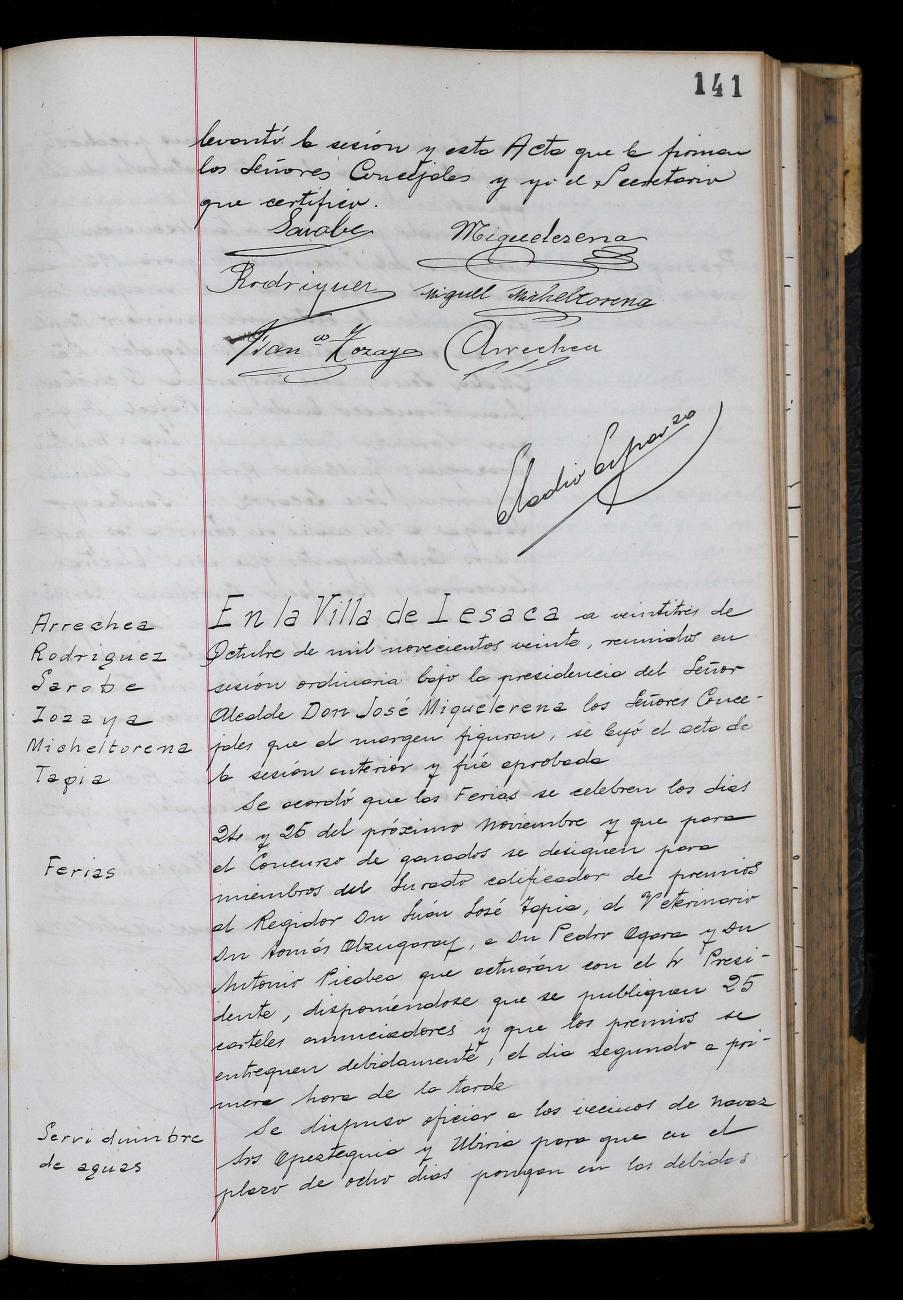 141
levantó la sesión y esta Acta que la firman
los Señores Concejales y yo el Secretario
que certifico.
Sarobe Miquelerena
Rodriguez Miguel Micheltorena
Fran.co Zozaya Arrechea
Eladio Esparza
Arrechea
Rodriguez
Sarobe
Zozaya
Micheltorena
Tapia
En la Villa de Lesaca a veintitrés de
Octubre de mil novecientos veinte, reunidos en
sesión ordinaria bajo la presidencia del Señor
Alcalde Don José Miquelerena los Señores Conce-
jales que al margen figuran, se leyó el acta de
la sesión anterior y fué aprobada
Ferias
Se acordó que las Ferias se celebren los dias
24 y 25 del próximo Noviembre y que para
el Concurso de ganados se designen para
miembros del Jurado calificador de premios
al Regidor Dn Juán José Tapia, al Veterinario
Dn Tomás Olzugaray, a Dn Pedro Ogara y Dn
Antonio Picabea que actuarán con el Sr Presi-
dente, disponiéndose que se publiquen 25
carteles anunciadores y que los premios se
entreguen debidamente, el dia segundo a pri-
mera hora de la tarde
Servidumbre
de aguas
Se dispuso oficiar a los vecinos de Navaz
Srs Opeztequia y Ubiria para que en el
plazo de ocho dias pongan en las debidas